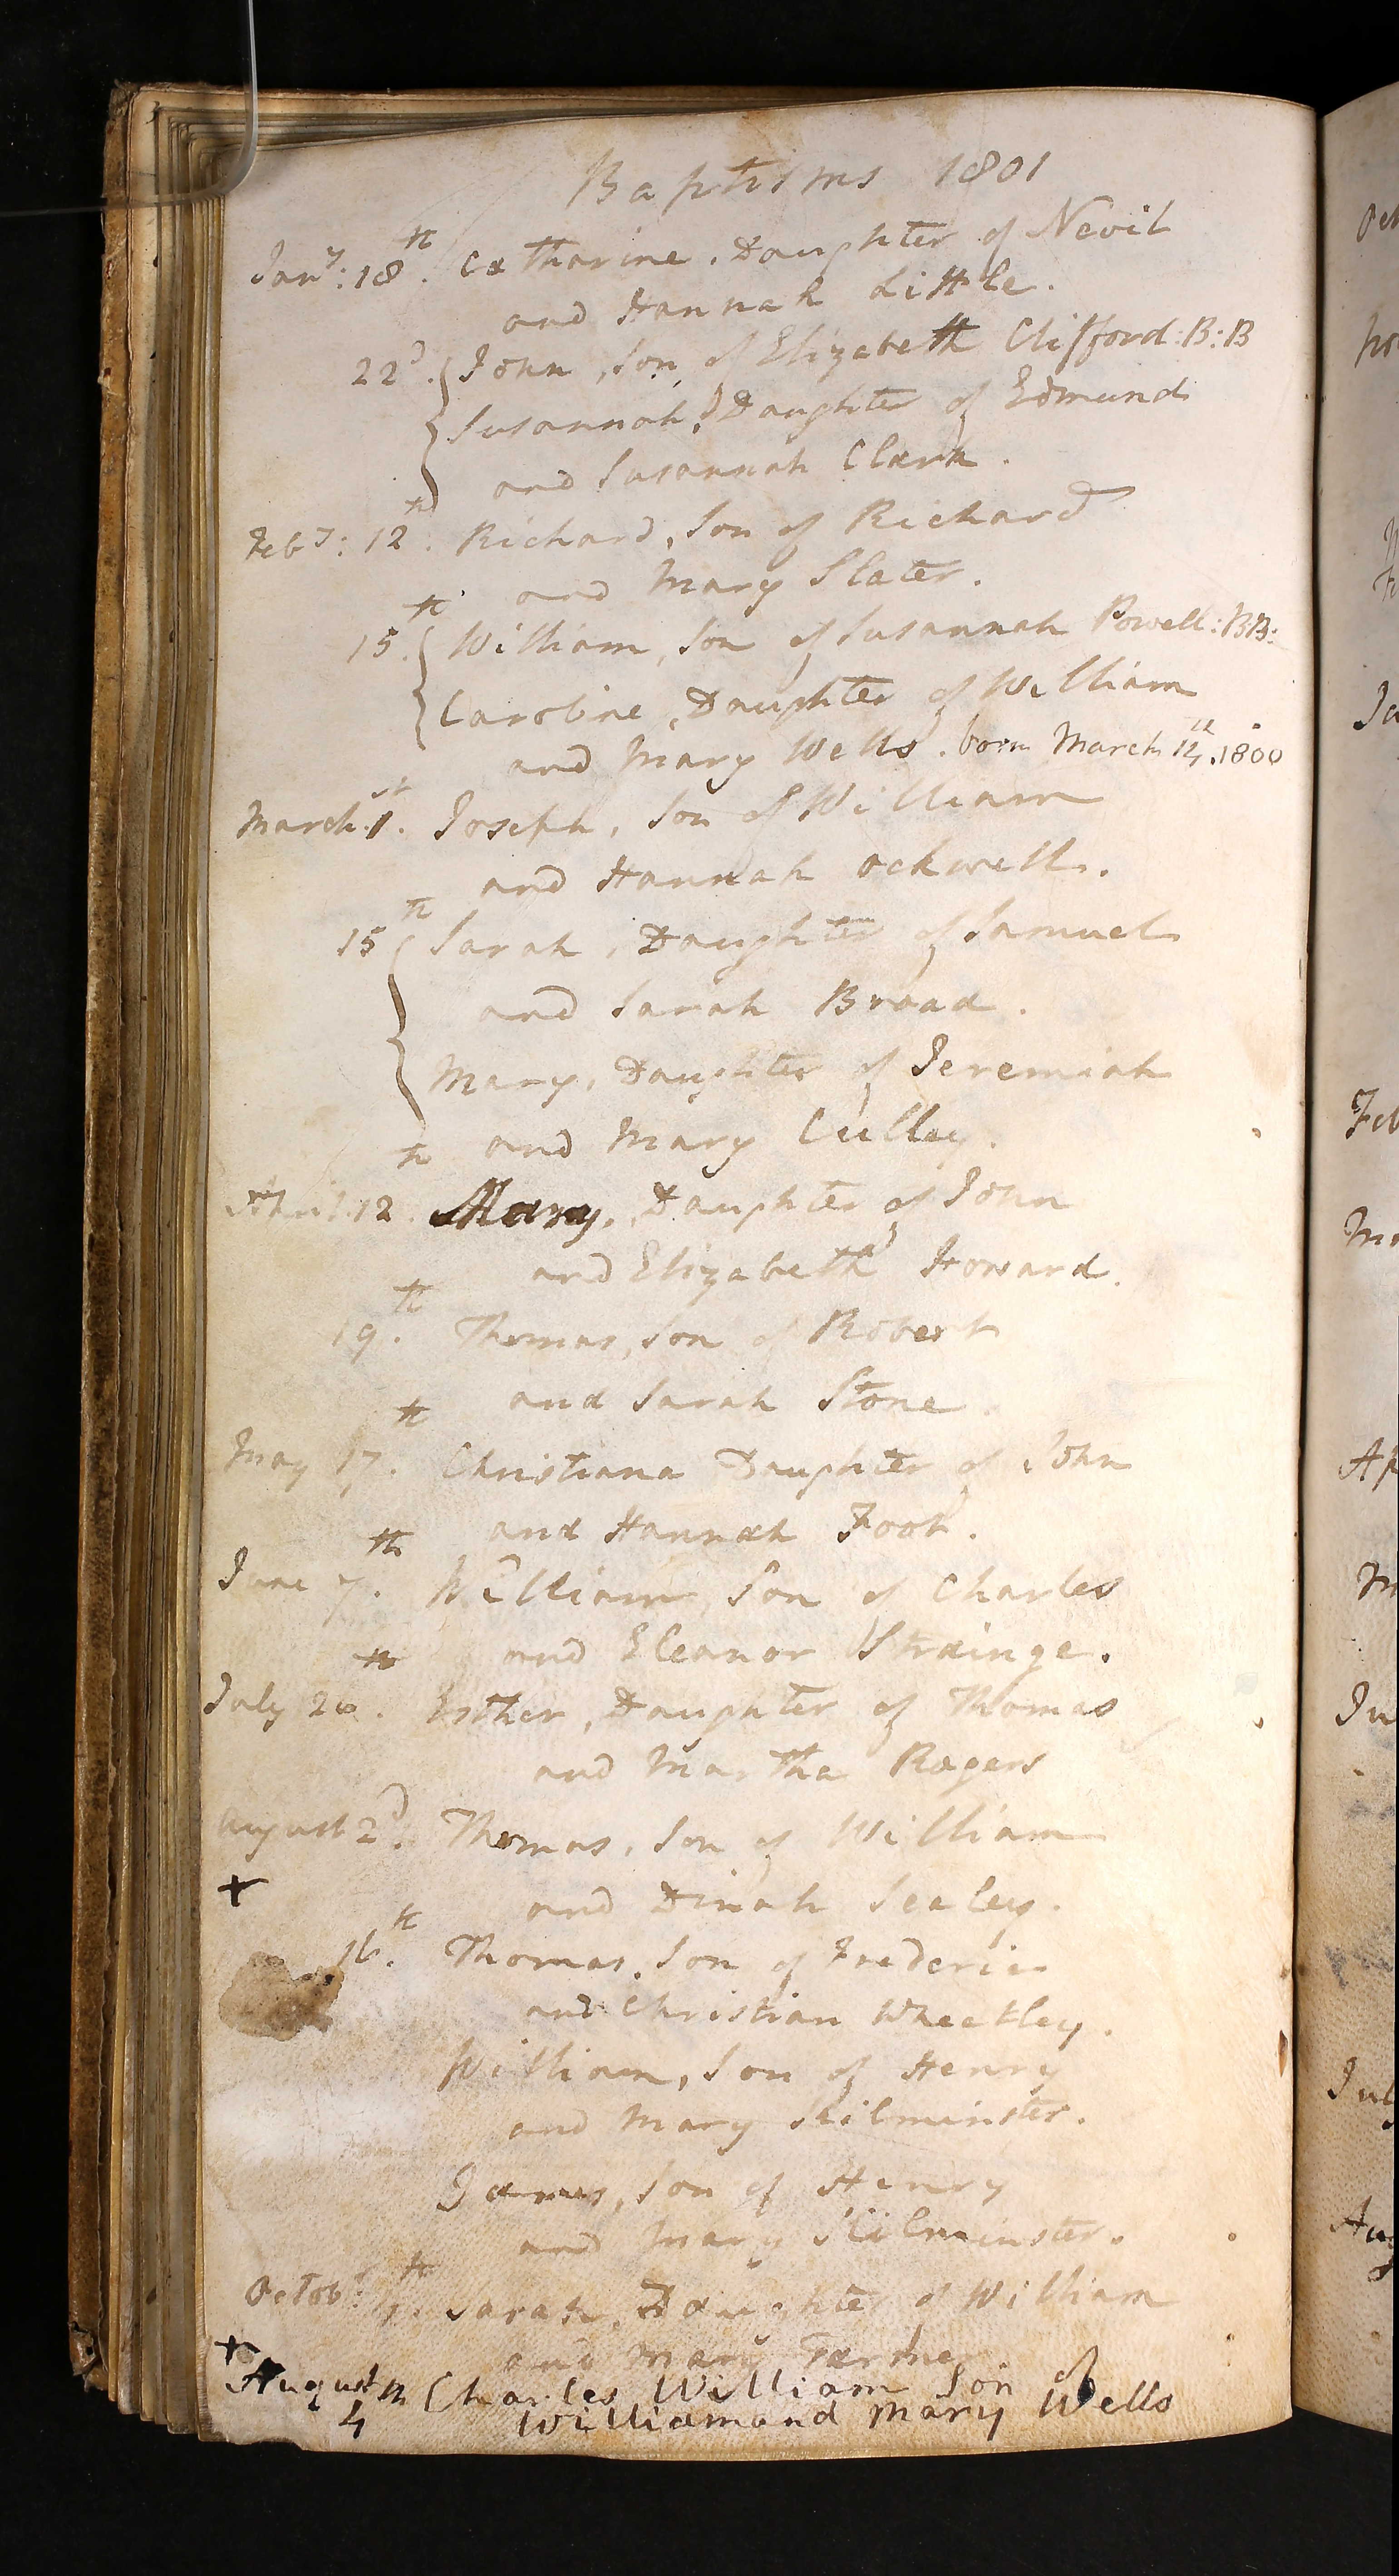 Baptisms 1801
Jany: 18th. Catharine, Daughter of Nevil
and Hannah Little.
22d. John, Son of Elizabeth Clifford: B: B
Susannah, Daughter of Edmund
and Susannah Clark.
Feby: 12th. Richard, Son of Richard
and Mary Slater.
15th. William, Son of Susannah Powell: B:B:
Caroline, Daughter of William
and Mary Wells. born March 14th, 1800
March. 1st. Joseph, Son of William
and Hannah Ockwell.
15th Sarah, Daughter of Samuel
and Sarah Broad.
Mary, Daughter of Jeremiah
and Mary Culley.
April 12th. Mary, Daughter of John
and Elizabeth Howard.
19th. Thomas, Son of Robert
and Sarah Stone.
May 17th. Christiana Daughter of John
and Hannah Foot.
June 7th. William, Son of Charles
and Eleanor Strainge.
July 26th. Esther, Daughter of Thomas
and Martha Rogers
August 2d. Thomas, Son of William
+ and Dinah Sealey.
16th. Thomas, Son of Frederic
and Christian Wheetley.
William, Son of Henry
and Mary Kilminster.
James, Son of Henry
and Mary Kilminster.
Octobr. th. Sarah, Daughter of William
and Mary
+ August th Charles William Son of
4 William and Mary Wells